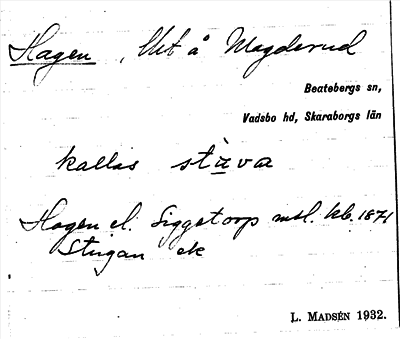 Hagen, lht å Magderud
Beatebergs sn,
Vadsbo hd, Skaraborgs län
kallas stùva
Hagen el. Siggetorp msl. kb. 1871
Stugan ek
L. MADSÉN 1932.